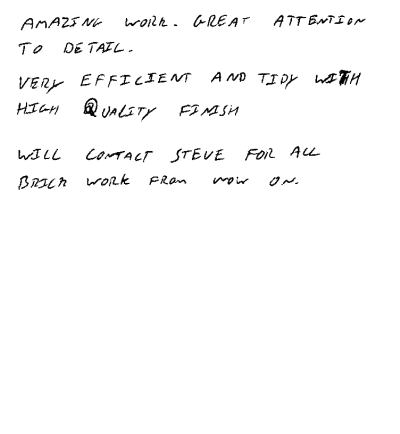 AMAZING WORK. GREAT ATTENTION
TO DETAIL.
VERY EFFICIENT AND TIDY WITH
HIGH QUALITY FINISH
WILL CONTACT STEVE FOR ALL
BRICK WORK FROM NOW ON.